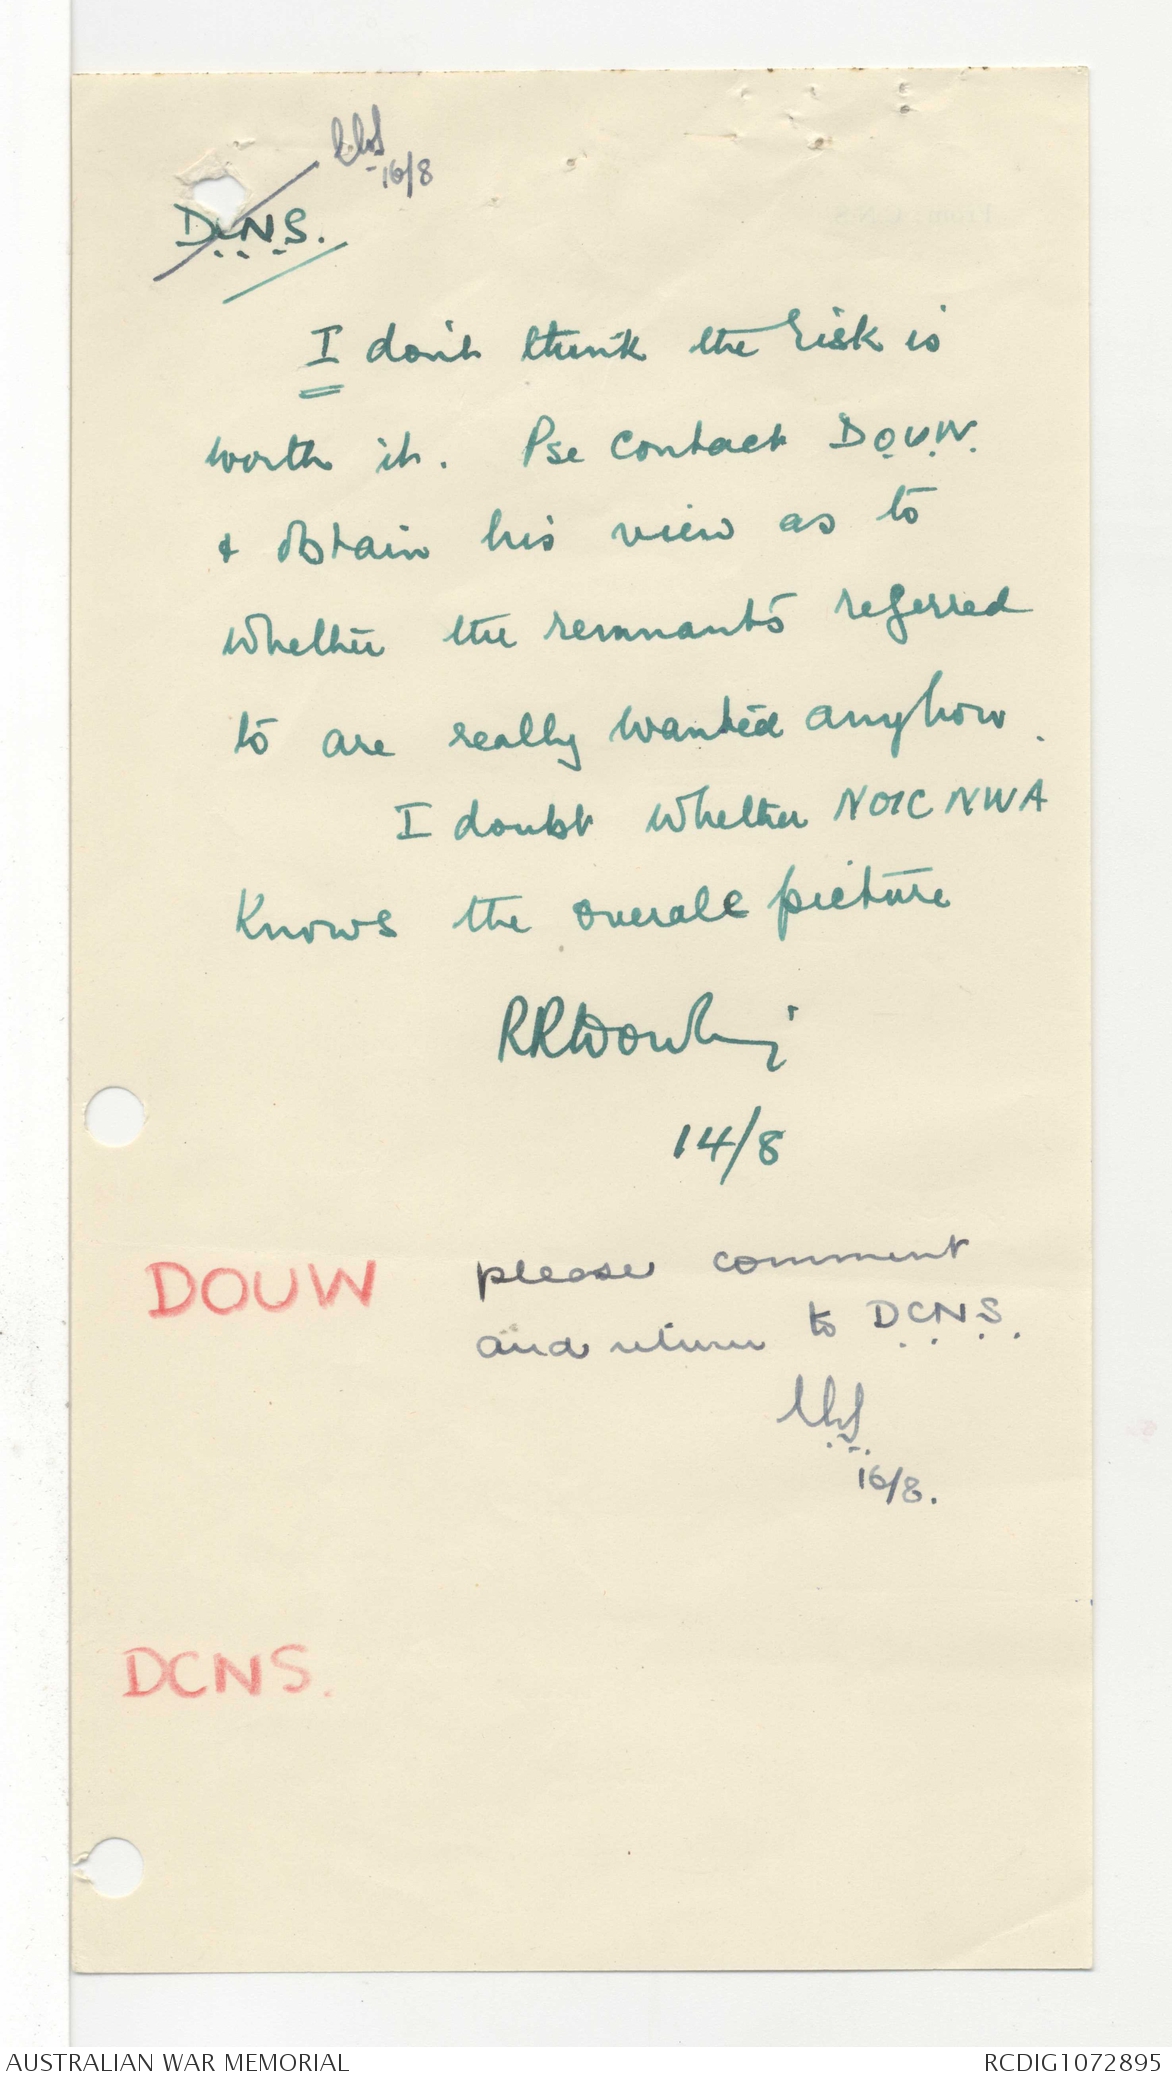 16/8
D.C.N.S.
I don't think the risk is
worth it. Pse contact D.O.U.W.
& obtain his view as to
whether the remnants referred
to are really wanted anyhow.
I doubt whether NOIC NWA
knows the overall picture
RRDowling
14/8
DOUW please comment
and return to D.C.N.S.
16/8.
DCNS.
AUSTRALIAN WAR MEMORIAL
RCDIG1072895